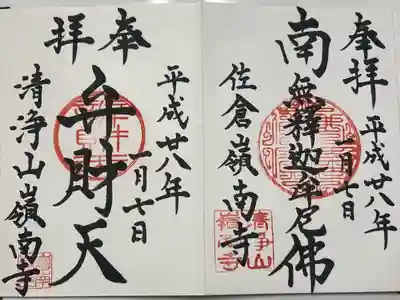 奉拝
平成廿八年
一月七日
南無釋迦牟尼佛
佐倉嶺南寺
奉拝
平成廿八年
一月七日
弁財天
清浄山嶺南寺